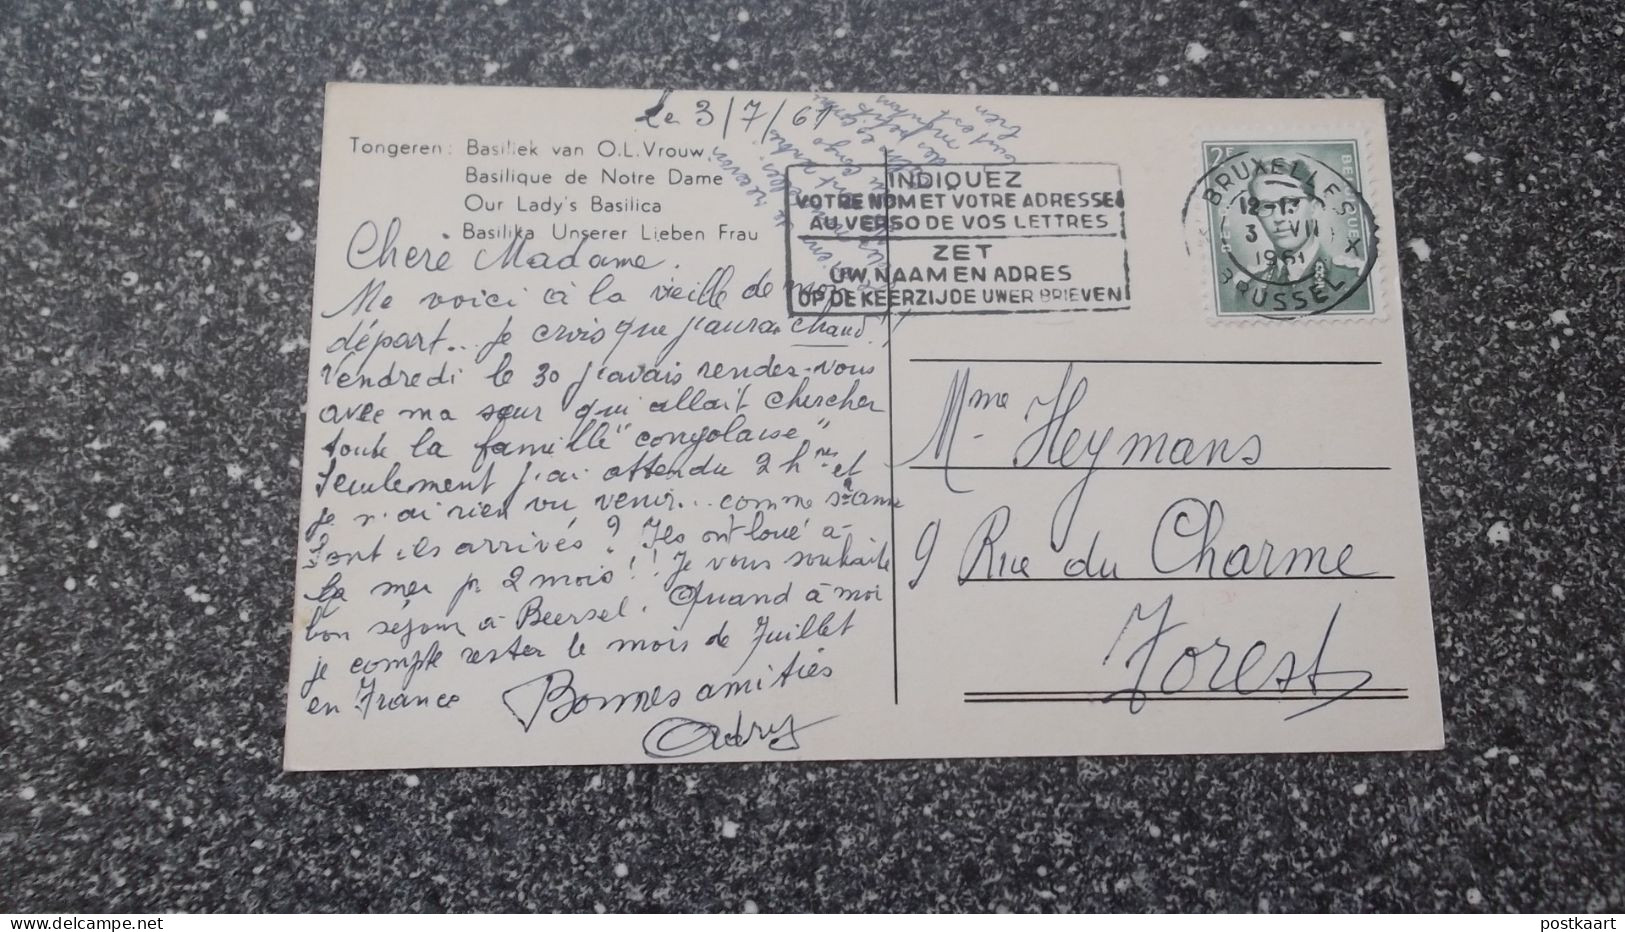 Le 3/7/61
Tongeren: Basiliek van O.L.Vrouw
Basilique de Notre Dame
Our Lady's Basilica
Basilika Unserer Lieben Frau
INDIQUEZ
VOTRE NOM ET VOTRE ADRESSE
AU VERSO DE VOS LETTRES
ZET
UW NAAM EN ADRES
OP DE KEERZIJDE UWER BRIEVEN
2F
BRUXELLES X
12-13
3 VII
1961
BRUSSEL X
Cherè Madame.
Me voici à la vieille de mon
départ... Je crois que j'aurai chaud!!
Vendredi le 30 j'avais rendez-vous
avec ma sœur qui allait chercher
toute la famille "congolaise"
Seulement j'ai attendu 2 hres et
je n'ai rien vu venir... comme sr anne
Sont ils arrivés? Ils ont loué à
la mer pr 2 mois!! Je vous souhaite
bon séjour à Beersel. Quand à moi
je compte rester le mois de Juillet
en France
Bonnes amitiés
Mme Heymans
9 Rue du Charme
Forest
postkaart